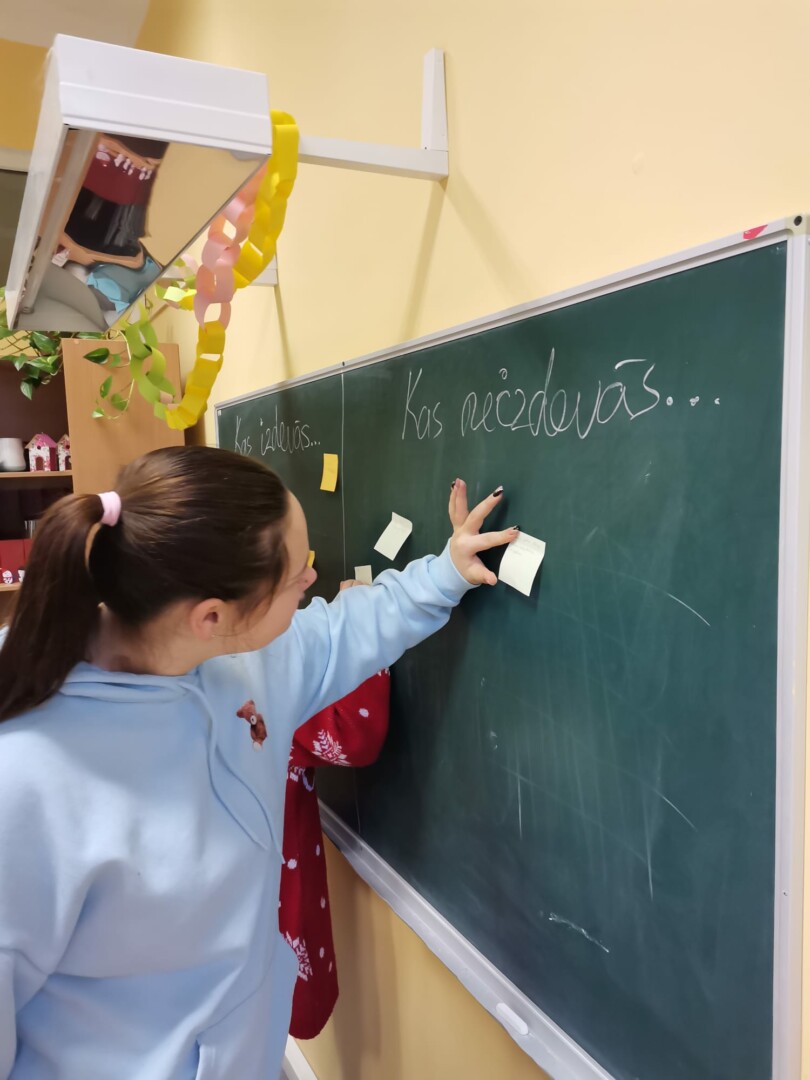 Kas izdevās...
Kas neizdevās...